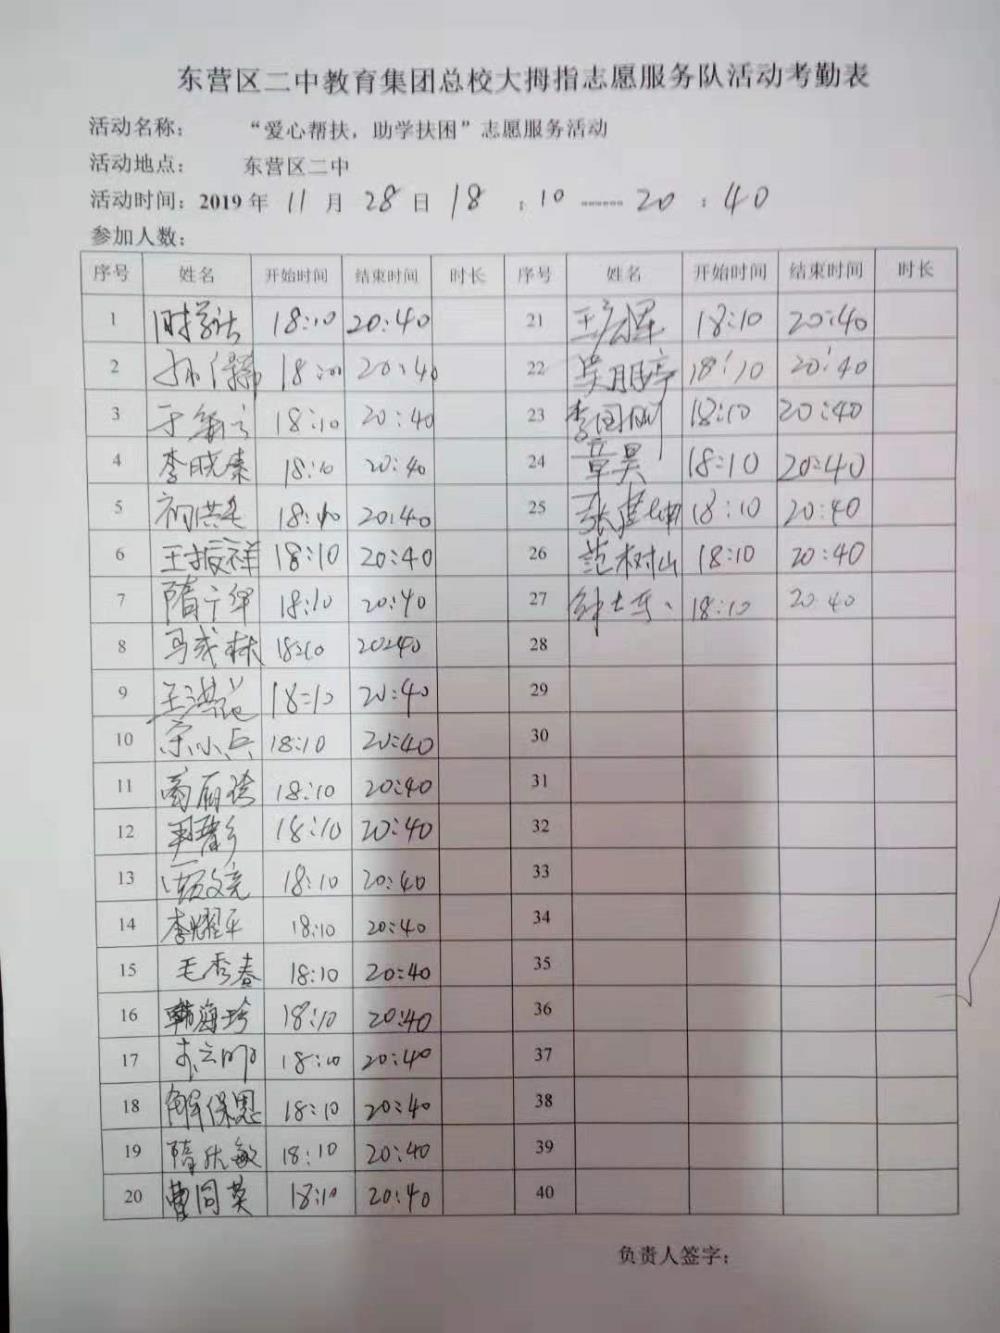 东营区二中教育集团总校大拇指志愿服务队活动考勤表
活动名称： “爱心帮扶，助学扶困”志愿服务活动
活动地点： 东营区二中
活动时间：2019 年 11 月 28 日 18 : 10 ------ 20 : 40
参加人数：
序号 姓名 开始时间 结束时间 时长 序号 姓名 开始时间 结束时间 时长
1 18:10 20:40 21 王宏军 18:10 20:40
2 18:00 20:40 22 吴朋亭 18:10 20:40
3 18:10 20:40 23 李国刚 18:10 20:40
4 李晓秦 18:10 20:40 24 章昊 18:10 20:40
5 18:10 20:40 25 张建坤 18:10 20:40
6 王振祥 18:10 20:40 26 范树山 18:10 20:40
7 18:10 20:40 27 18:10 20:40
8 马成林 18:10 20:40 28
9 18:10 20:40 29
10 宗小兵 18:10 20:40 30
11 18:10 20:40 31
12 18:10 20:40 32
13 18:10 20:40 33
14 李耀平 18:10 20:40 34
15 毛秀春 18:10 20:40 35
16 韩海珍 18:10 20:40 36
17 18:10 20:40 37
18 解保恩 18:10 20:40 38
19 18:10 20:40 39
20 曹同英 18:10 20:40 40
负责人签字：